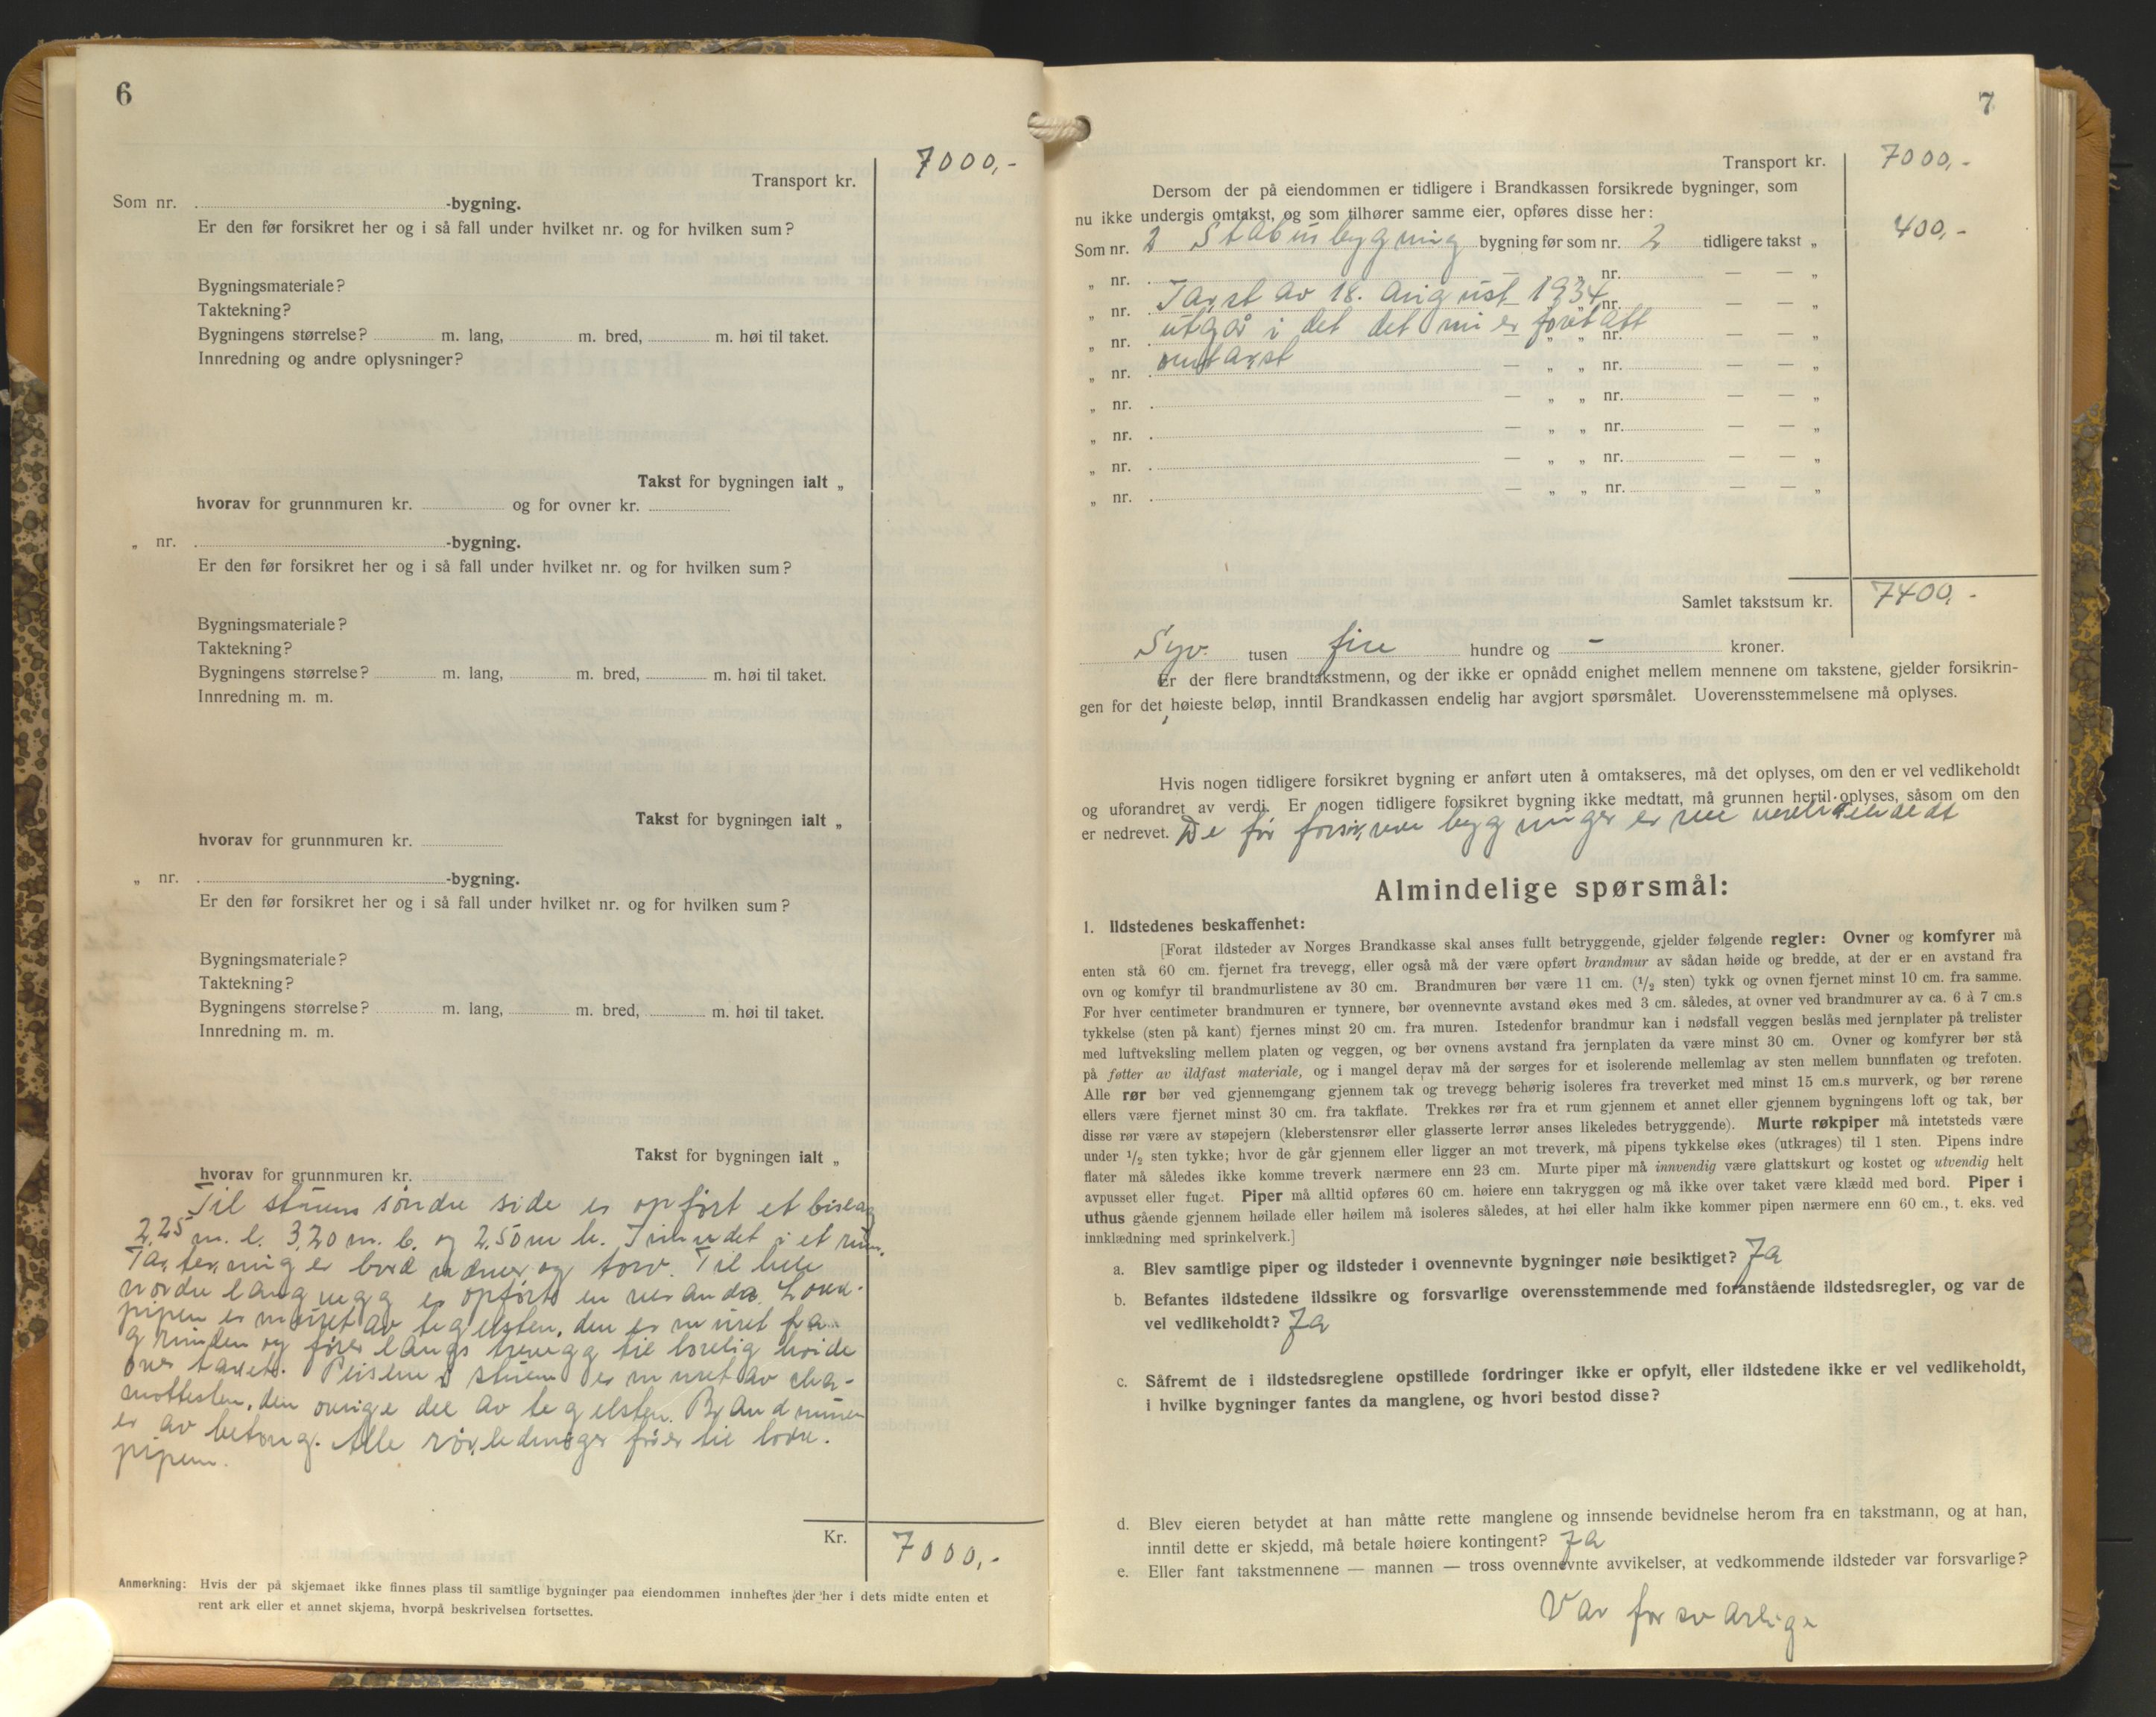 6
Transport kr. 7000,-
Som nr. -bygning.
Er den før forsikret her og i så fall under hvilket nr. og for hvilken sum?
Bygningsmateriale?
Taktekning?
Bygningens størrelse? m. lang, m. bred, m. høi til taket.
Innredning og andre oplysninger?
Takst for bygningen ialt „
hvorav for grunnmuren kr. og for ovner kr.
„ nr. -bygning.
Er den før forsikret her og i så fall under hvilket nr. og for hvilken sum?
Bygningsmateriale?
Taktekning?
Bygningens størrelse? m. lang, m. bred, m. høi til taket.
Innredning m. m.
Takst for bygningen ialt „
hvorav for grunnmuren kr.
„ nr. -bygning.
Er den før forsikret her og i så fall under hvilket nr. og for hvilken sum?
Bygningsmateriale?
Taktekning?
Bygningens størrelse? m. lang, m. bred, m. høi til taket.
Innredning m. m.
Takst for bygningen ialt „
hvorav for grunnmuren kr.
Til stuens søndre side er opført et bislag
2,25 m. l. 3,20 m. b. og 2,50 m h. Innredet i et rum.
Taktekning er bord næver og torv. Til hele
nordre langvegg er opført en veranda. Lokk-
pipen er muret av teglsten, den er muret fra
grunden og fører langs trevegg til lovlig høide
over taket. Peisene i stuen er muret av cha-
mottesten, den øvrige del av teglsten. Brandmuren
er av betong. Alle rørledninger fører til lokk-
pipen.
Kr. 7000,-
Anmerkning: Hvis der på skjemaet ikke finnes plass til samtlige bygninger paa eiendommen innheftes der her i dets midte enten et
rent ark eller et annet skjema, hvorpå beskrivelsen fortsettes.
7
Transport kr. 7000,-
Dersom der på eiendommen er tidligere i Brandkassen forsikrede bygninger, som
nu ikke undergis omtakst, og som tilhører samme eier, opføres disse her:
Som nr. 2 Stabursbygning bygning før som nr. 2 tidligere takst „ 400,-
„ nr. — „ nr. — — „
„ nr. Takst av 18. august 1934 nr. — — „
„ nr. utgår i det det nu er foretatt nr. — — „
„ nr. omtakst — „ „ nr. — — „
„ nr. — „ „ nr. — — „
„ nr. — „ „ nr. — — „
„ nr. — „ „ nr. — — „
„ nr. — „ „ nr. — — „
Samlet takstsum kr. 7400,-
Syv tusen fire hundre og - kroner.
Er der flere brandtakstmenn, og der ikke er opnådd enighet mellem mennene om takstene, gjelder forsikrin-
gen for det høieste beløp, inntil Brandkassen endelig har avgjort spørsmålet. Uoverensstemmelsene må oplyses.
Hvis nogen tidligere forsikret bygning er anført uten å omtakseres, må det oplyses, om den er vel vedlikeholdt
og uforandret av verdi. Er nogen tidligere forsikret bygning ikke medtatt, må grunnen hertil oplyses, såsom om den
er nedrevet. De før forsikrede bygninger er vel vedlikeholdt
Almindelige spørsmål:
1. Ildstedenes beskaffenhet:
[Forat ildsteder av Norges Brandkasse skal anses fullt betryggende, gjelder følgende regler: Ovner og komfyrer må
enten stå 60 cm. fjernet fra trevegg, eller også må der være opført brandmur av sådan høide og bredde, at der er en avstand fra
ovn og komfyr til brandmurlistene av 30 cm. Brandmuren bør være 11 cm. (1/2 sten) tykk og ovnen fjernet minst 10 cm. fra samme.
For hver centimeter brandmuren er tynnere, bør ovennevnte avstand økes med 3 cm. således, at ovner ved brandmurer av ca. 6 à 7 cm.s
tykkelse (sten på kant) fjernes minst 20 cm. fra muren. Istedenfor brandmur kan i nødsfall veggen beslås med jernplater på trelister
med luftveksling mellem platen og veggen, og bør ovnens avstand fra jernplaten da være minst 30 cm. Ovner og komfyrer bør stå
på føtter av ildfast materiale, og i mangel derav må der sørges for et isolerende mellemlag av sten mellem bunnflaten og trefoten.
Alle rør bør ved gjennemgang gjennem tak og trevegg behørig isoleres fra treverket med minst 15 cm.s murverk, og bør rørene
ellers være fjernet minst 30 cm. fra takflate. Trekkes rør fra et rum gjennem et annet eller gjennem bygningens loft og tak, bør
disse rør være av støpejern (kleberstensrør eller glasserte lerrør anses likeledes betryggende). Murte røkpiper må intetsteds være
under 1/2 sten tykke; hvor de går gjennem eller ligger an mot treverk, må pipens tykkelse økes (utkrages) til 1 sten. Pipens indre
flater må således ikke komme treverk nærmere enn 23 cm. Murte piper må innvendig være glattskurt og kostet og utvendig helt
avpusset eller fuget. Piper må alltid opføres 60 cm. høiere enn takryggen og må ikke over taket være klædd med bord. Piper i
uthus gående gjennem høilade eller høilem må isoleres således, at høi eller halm ikke kommer pipen nærmere enn 60 cm., t. eks. ved
innklædning med sprinkelverk.]
a. Blev samtlige piper og ildsteder i ovennevnte bygninger nøie besiktiget? Ja
b. Befantes ildstedene ildssikre og forsvarlige overensstemmende med foranstående ildstedsregler, og var de
vel vedlikeholdt? Ja
c. Såfremt de i ildstedsreglene opstillede fordringer ikke er opfylt, eller ildstedene ikke er vel vedlikeholdt,
i hvilke bygninger fantes da manglene, og hvori bestod disse?
d. Blev eieren betydet at han måtte rette manglene og innsende bevidnelse herom fra en takstmann, og at han,
inntil dette er skjedd, må betale høiere kontingent? Ja
e. Eller fant takstmennene — mannen — tross ovennevnte avvikelser, at vedkommende ildsteder var forsvarlige?
Var forsvarlige